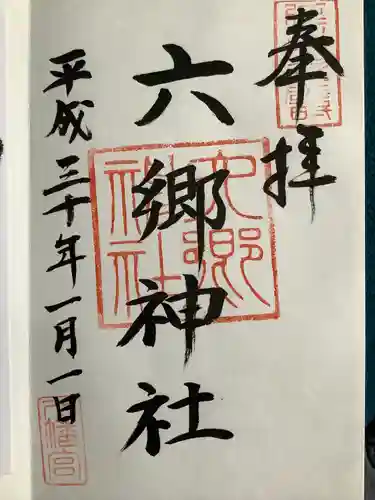 奉拝
六郷神社
平成三十年一月一日
六郷神社
八幡宮